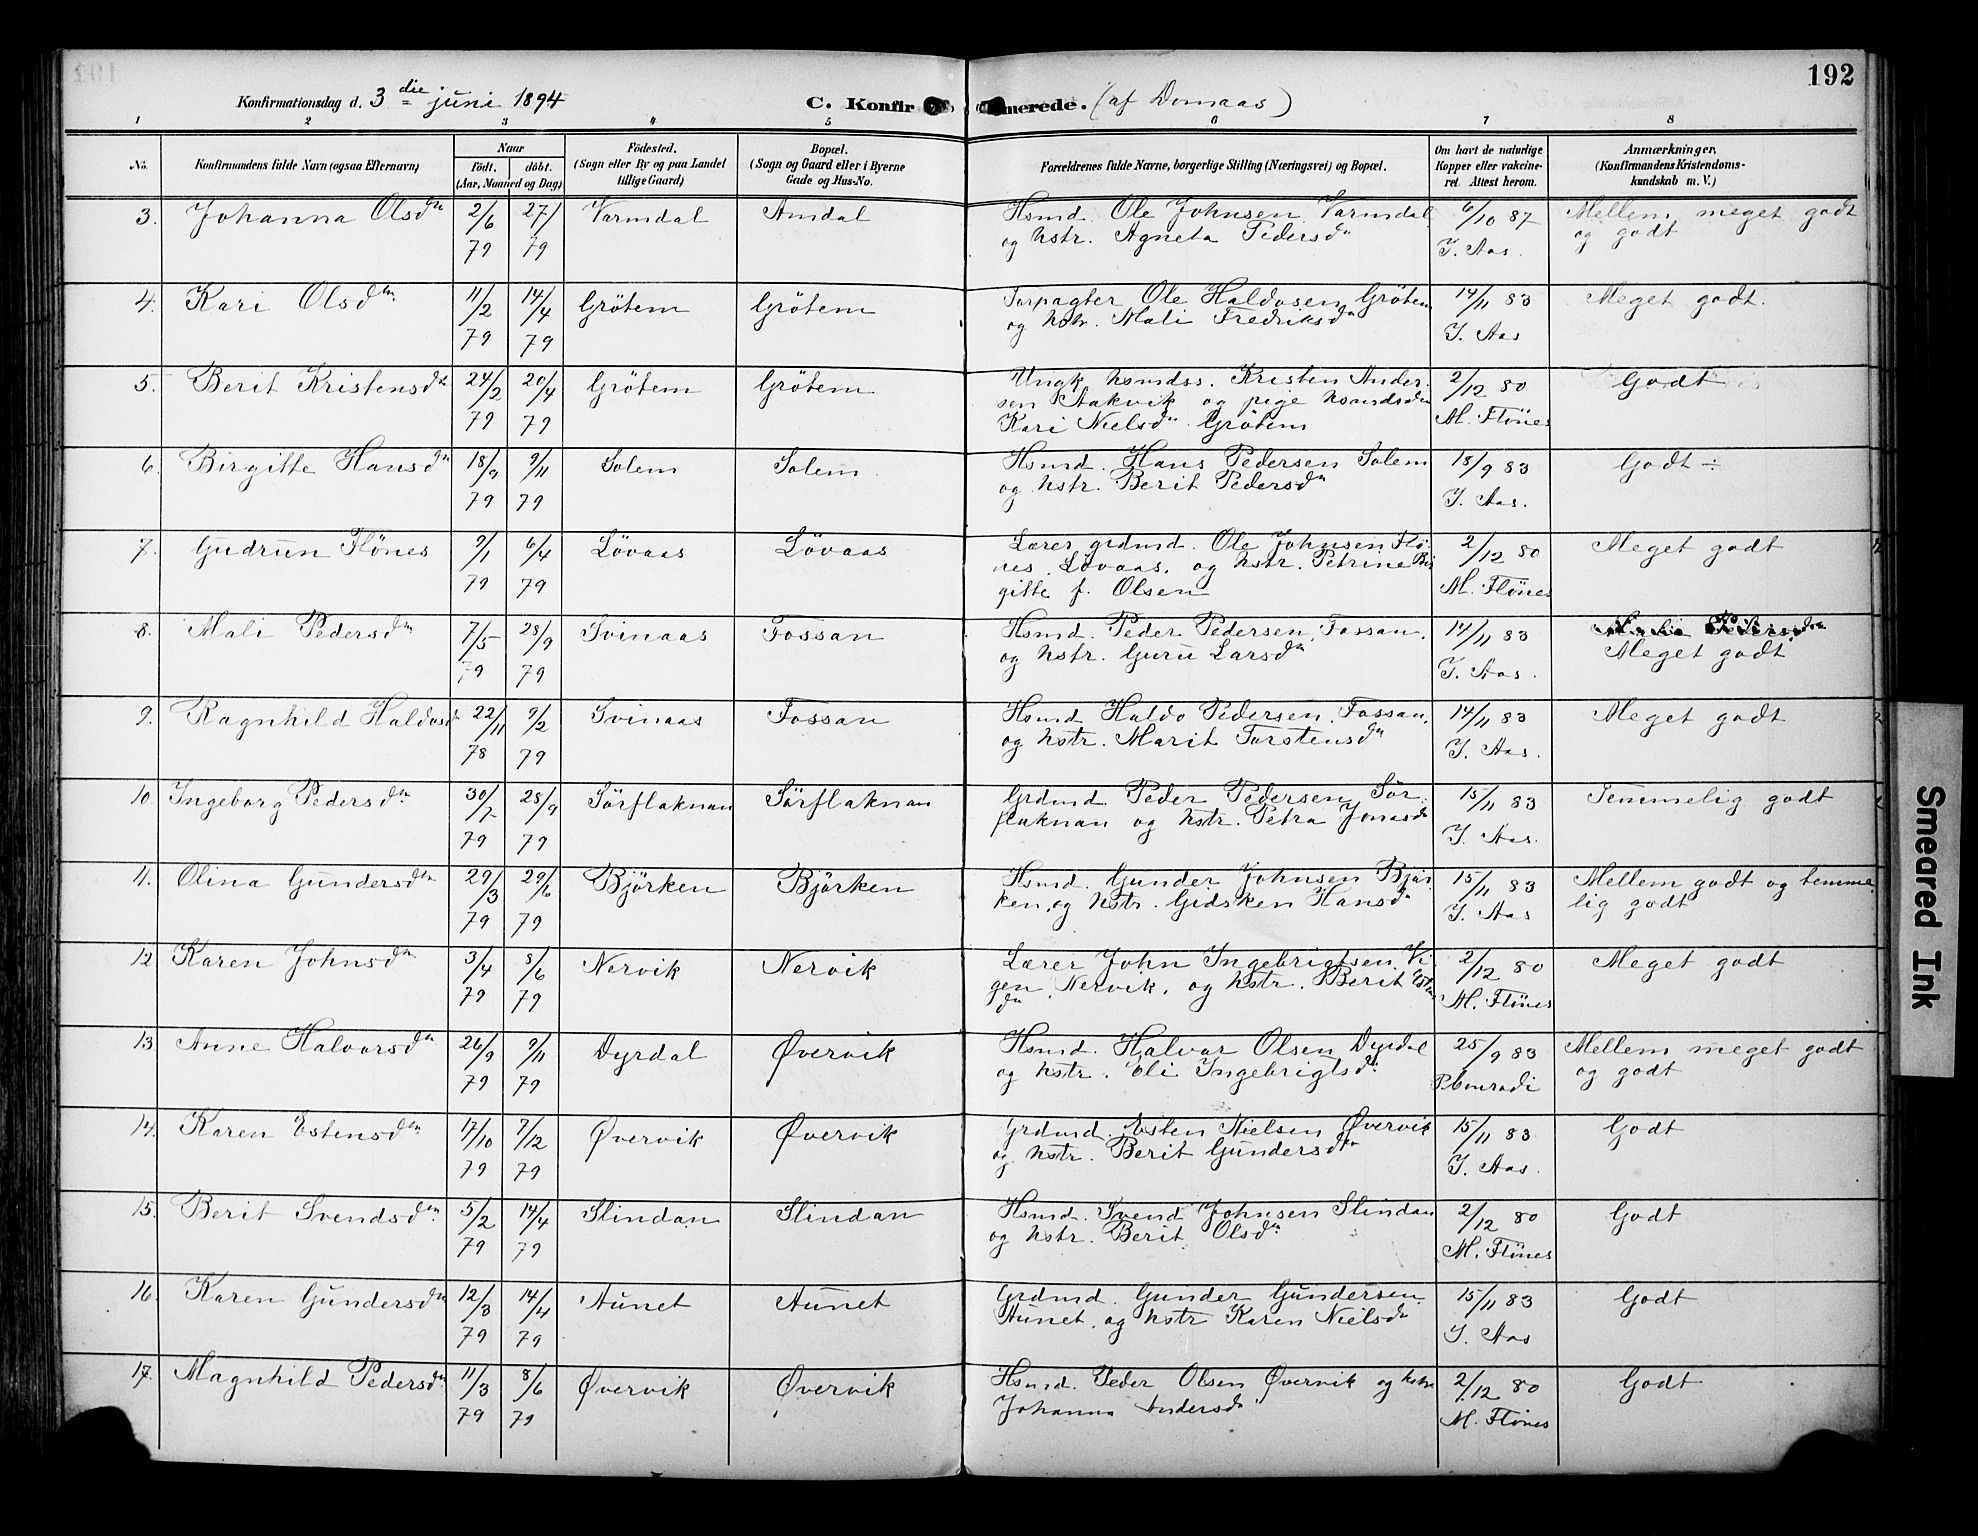 192
Konfirmationsdag d. 3die juni 1894 C. Konfirmerede. (af Domaas)
1 2 3 4 5 6 7 8
No. Konfirmandens fulde Navn (ogsaa Efternavn) Naar født. døbt. (Aar, Maaned og Dag) Fødested. (Sogn eller By og paa Landet tillige Gaard) Bopæl. (Sogn og Gaard eller i Byerne Gade og Hus-No. Forældrenes fulde Navne, borgerlige Stilling (Næringsvei) og Bopæl. Om havt de naturlige Kopper eller vakcineret. Attest herom. Anmærkninger. (Konfirmandens Kristendomskundskab m. V.)
3. Johanna Olsdtr 2/6 79 27/ 79 Varmdal Amdal Hsmd. Ole Johnsen Varmdal 6/10 87 Mellem meget godt
og hstr. Agneta Pedersdtr I. Aas. og godt
4. Kari Olsdtr 11/2 79 14/4 79 Grötem Grötem Jorpagter Ole Haldosen Gröten 14/11 83 Meget godt.
og hstr. Mali Fredriksdtr I. Aas
5. Berit Kristensdtr 24/2 79 20/4 79 Grötem Grötem Ungk. hsmdss. Kristen Ander- 2/12 80 Godt
sen Aakvik og pige hsmdsdtr M. Flönes
Kari Nielsdtr Grötem
6. Birgitte Hansdtr 18/9 79 9/11 79 Solem Solem Hsmd. Hans Pedersen Solem 18/9 83 Godt ÷
og hstr. Berit Pedersdtr I. Aas.
7. Gudrun Flönes 9/1 79 6/4 79 Lövaas Lövaas Lærer, grdmd. Ole Johnsen Flö- 2/12 80 Meget godt
nes, Lövaas, og hstr. Petrine Bir M. Flönes
gitte f. Olsen
8. Mali Pedersdtr 7/5 79 28/9 79 Svinaas Fossan Hsmd. Peder Pedersen, Fossan, 14/11 83
og hstr. Guru Larsdtr I. Aas. Meget godt
9. Ragnhild Haldosdtr 22/11 78 9/2 79 Svinaas Fossan Hsmd Haldo Pedersen, Fossan, 14/11 83 Meget godt
og hstr. Marit Torstensdtr I. Aas.
10. Ingeborg Pedersdtr 30/7 79 28/9 79 Sörflaknan Sörflaknan Grdmd. Peder Pedersen Sör- 15/11 83 Temmelig godt
flaknan og hstr. Petra Jonasdtr I. Aas.
11. Olina Gundersdtr 29/3 79 29/6 79 Björken Björken Hsmd. Gunder Johnsen Björ 15/11 83 Mellem godt og temme
ken, og hstr. Gidsken Hansdtr I. Aas lig godt
12. Karen Johnsdtr 3/4 79 8/6 79 Nervik Nervik Lærer John Ingebrigtsen Vi- 2/12 80 Meget godt
gen, Nervik, og hstr. Berit Esten M. Flönes
dtr
13. Anne Halvorsdtr 26/9 79 9/11 79 Dyrdal Øvervik Hsmd. Halvor Olsen Dyrdal 25/9 83 Mellem meget godt
og hstr. Eli Ingebrigtsdtr P. Conradi og godt
14. Karen Estensdtr 17/10 79 7/12 79 Øvervik Øvervik Grdmd. Esten Nielsen Øvervik 15/11 83 Godt
og hstr. Berit Gundersdtr I. Aas.
15. Berit Svendsdtr 5/2 79 14/4 79 Slindan Slindan Hsmd. Svend Johnsen Slindan 2/12 80 Godt
og hstr. Berit Olsdtr M. Flönes
16. Karen Gundersdtr 12/3 79 14/4 79 Aunet Aunet Grdmd. Gunder Gundersen 15/11 83 Godt
Aunet, og hstr Karen Nielsdtr I. Aas
17. Magnhild Pedersdtr 11/3 79 8/6 79 Øvervik Øvervik Hsmd. Peder Olsen Øvervik og hstr 2/12 80 Godt
Johanna Andersdtr M. Flönes
Smeared Ink